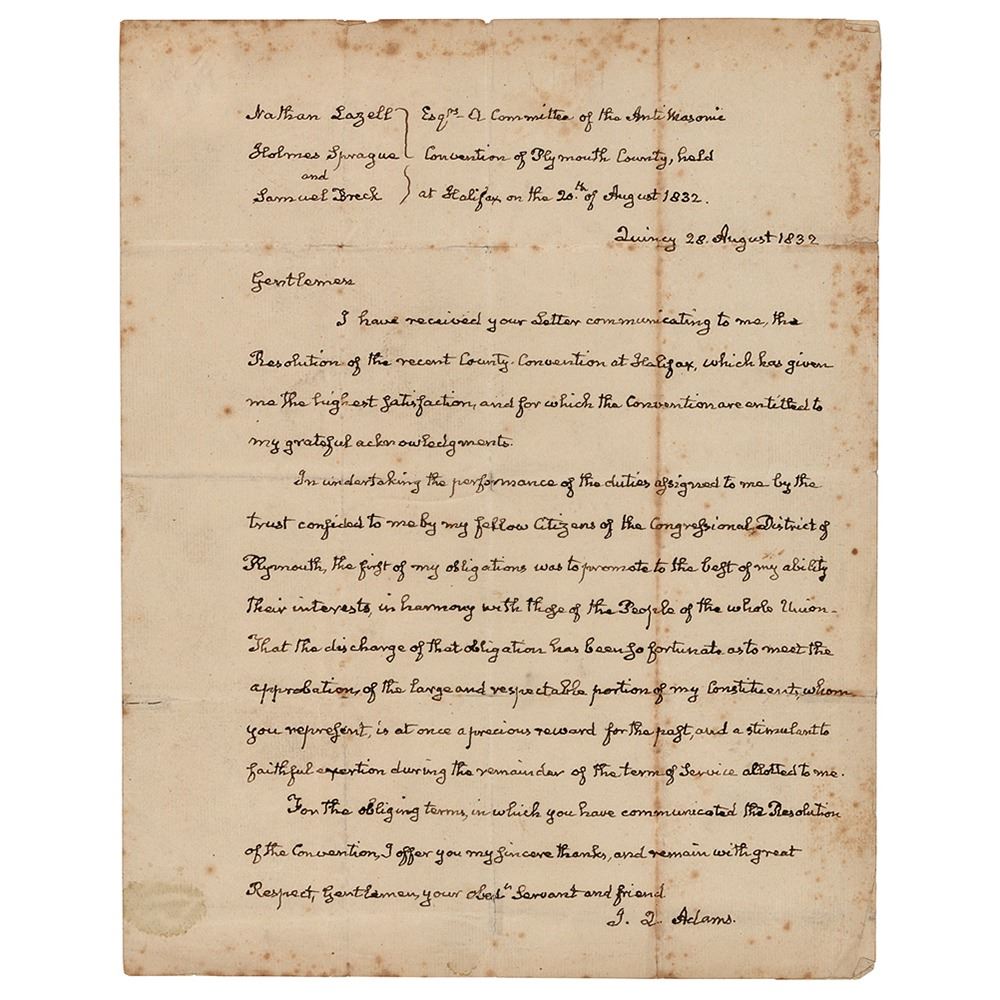 Nathan Lazell } Esqrs. A Committee of the Anti Masonic
Holmes Sprague Convention of Plymouth County, held
and
Samuel Breck } at Halifax on the 20.th of August 1832.
Quincy 28. August 1832
Gentlemen
I have received your Letter communicating to me, the
Resolution of the recent County-Convention at Halifax, which has given
me the highest satisfaction, and for which the Convention are entitled to
my grateful acknowledgments.
In undertaking the performance of the duties assigned to me by the
trust confided to me by my fellow Citizens of the Congressional District of
Plymouth, the first of my obligations was to promote to the best of my ability
their interests, in harmony with those of the People of the whole Union-
That the discharge of that obligation has been so fortunate as to meet the
approbation, of the large and respectable portion of my Constituents, whom
you represent, is at once a precious reward for the past, and a stimulant to
faithful exertion during the remainder of the term of Service allotted to me.
For the obliging terms, in which you have communicated the Resolution
of the Convention, I offer you my sincere thanks, and remain with great
Respect, Gentlemen, your Servant and friend
J. Q. Adams.